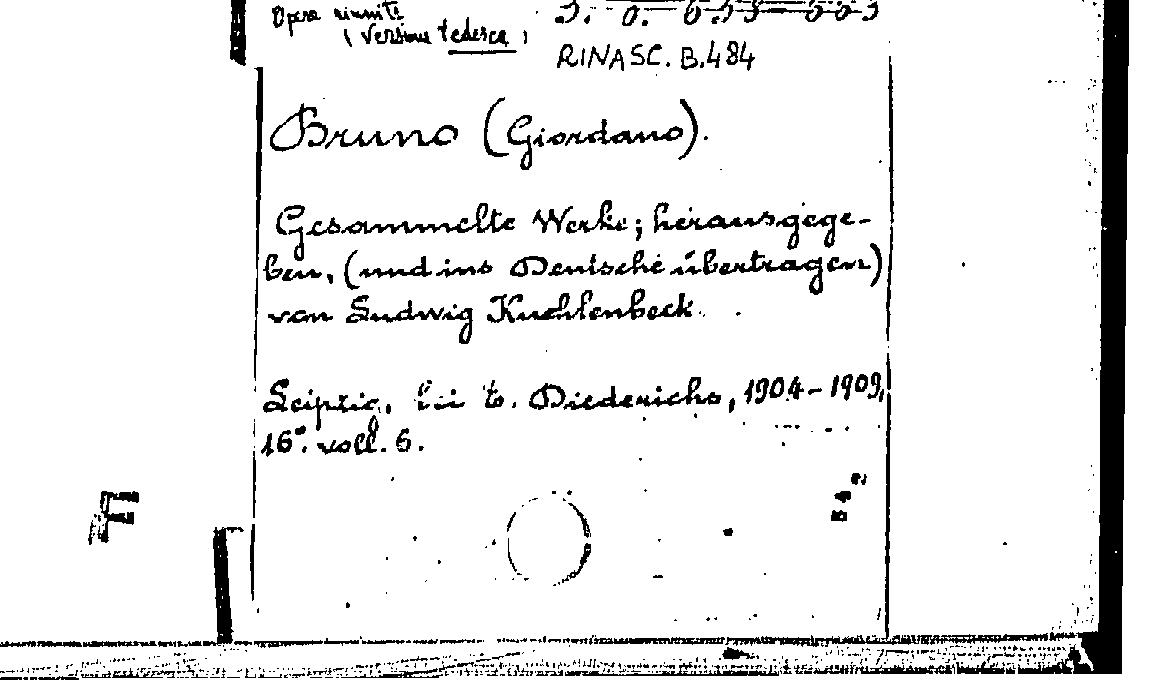 Opere riunite
(versione tedesca)
RINASC. B.484
Bruno (Giordano).
Gesammelte Werke; herausgege-
ben, (und ins Deutsche übertragen)
von Ludwig Kuhlenbeck.
Leipzig, bei E. Diederichs, 1904-1909,
16°. voll. 6.
F